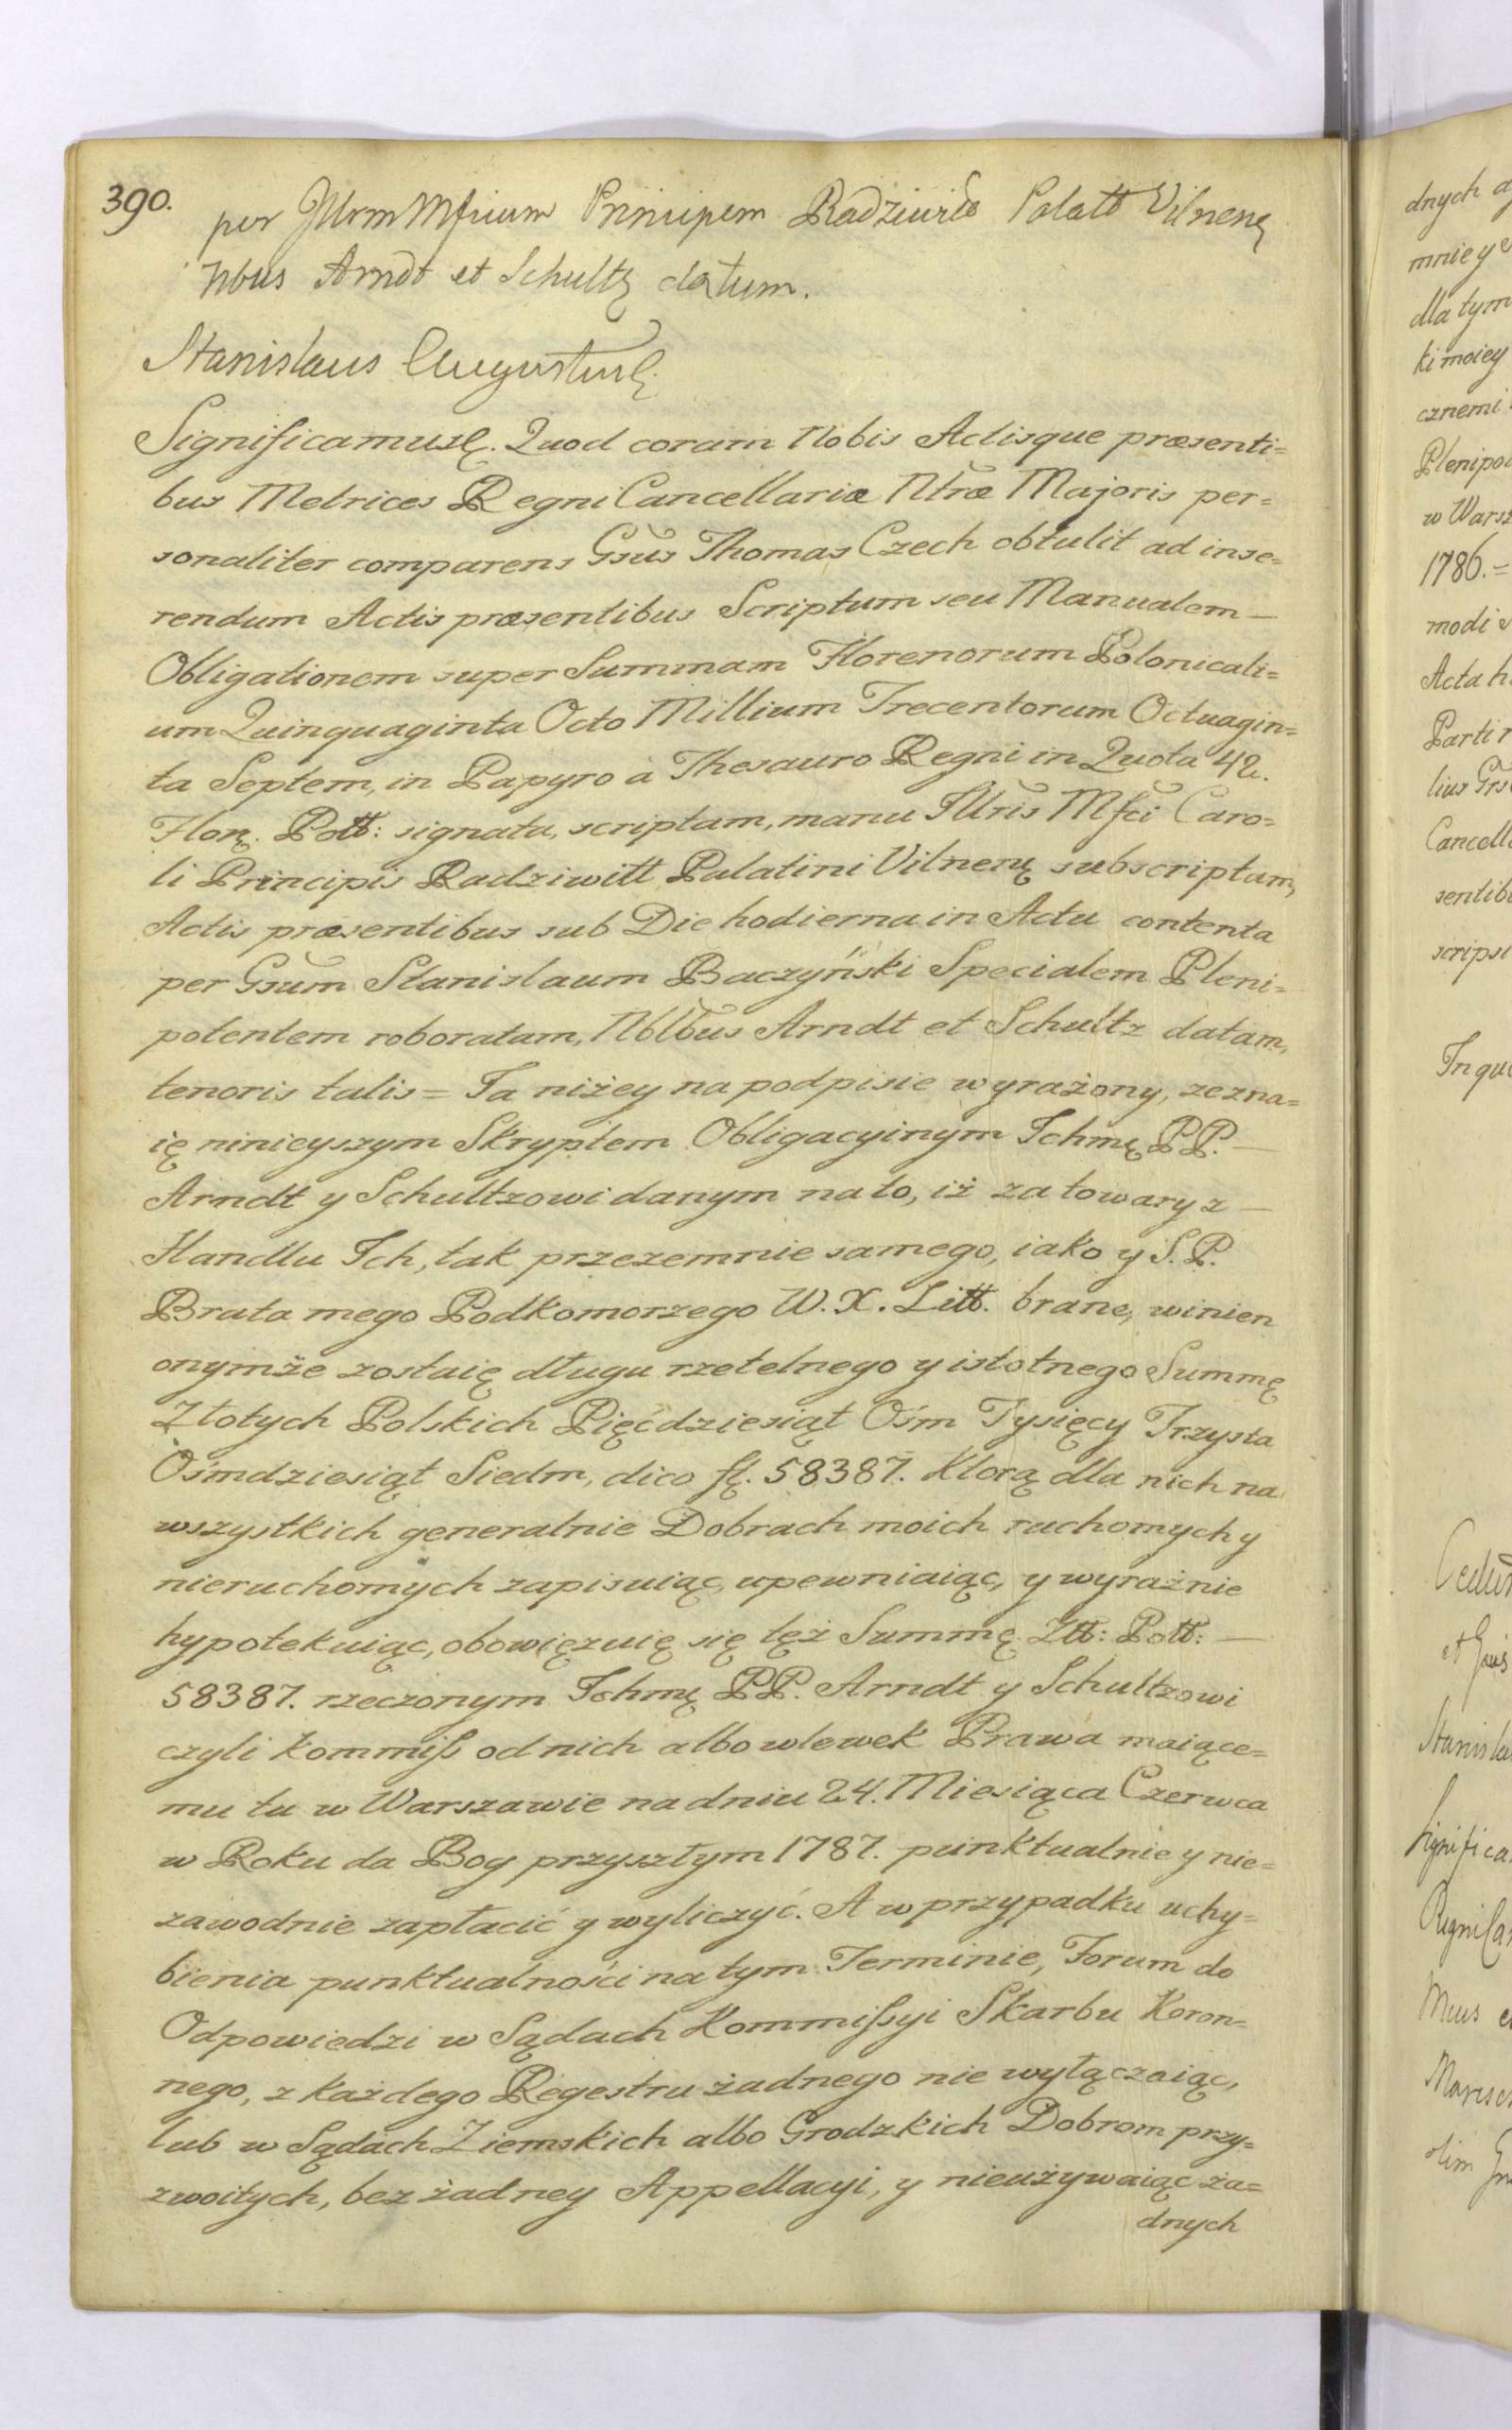 390.
per Jllrm Mficum Principem Radziwiłł Palatt Vilnenę
Nbus Arndt et Schultz datum.
Stanislaus Augustusę.
Significamusę. Quod coram Nobis Actisque præsenti=
bus Metrices Regni Cancellariæ Ntræ Majoris per=
sonaliter comparens Gsus Thomas Czech obtulit ad inse=
rendum Actis præsentibus Scriptum seu Manualem —
Obligationem super Summam Florenorum Polonicali=
um Quinquaginta Octo Millium Trecentorum Octuagin=
ta Septem, in Papyro à Thesauro Regni in Quota 42.
Florę. Poll: signata, scriptam, manu Jllris Mfci Caro=
li Principis Radziwiłł Palatini Vilnenę subscriptam,
Actis præsentibus sub Die hodierna in Actu contenta
per Gsum Stanislaum Baczyński Specialem Pleni=
potentem roboratam, Nblbus Arndt et Schultz datam,
tenoris talis = Ja niżey na podpisie wyrażony, zezna=
ię ninieyszym Skryptem Obligacyinym Jchmę PP. —
Arndt y Schultzowi danym na to, iż za towary z —
Handlu Jch, tak przezemnie samego, iako y S. P.
Brata mego Podkomorzego W. X. Litt. brane, winien
onymże zostaię długu rzetelnego y istotnego Summę
Złotych Polskich Pięćdziesiąt Ośm Tysięcy Trzysta
Ośmdziesiąt Siedm, dico fl. 58387. Którą dla nich na
wszystkich generalnie Dobrach moich ruchomych y
nieruchomych zapisuiąc, upewniaiąc, y wyraźnie
hypotekuiąc, obowięzuię się tęż Summę Złł: Poll: —
58387. rzeczonym Jchmę PP. Arndt y Schultzowi
czyli kommiss od nich albo wlewek Prawa maiące=
mu tu w Warszawie na dniu 24. Miesiąca Czerwca
w Roku da Bog przyszłym 1787. punktualnie y nie=
zawodnie zapłacić y wyliczyć. A w przypadku uchy=
bienia punktualności na tym Terminie, Forum do
Odpowiedzi w Sądach Kommissyi Skarbu Koron=
nego, z każdego Regestru żadnego nie wyłączaiąc,
lub w Sądach Ziemskich albo Grodzkich Dobrom przy=
zwoitych, bez żadney Appellacyi, y nieużywaiąc ża=
dnych
dnych
mnie y
dla tym
ki moiey
cznemi
Plenipo
w Warsz
1786. =
modi
Acta h
Parti
lius Grs
Cancell
sentib
scripsi
Jn qu
et
Stanisla
Significa
Regni Ca
Mus
olim